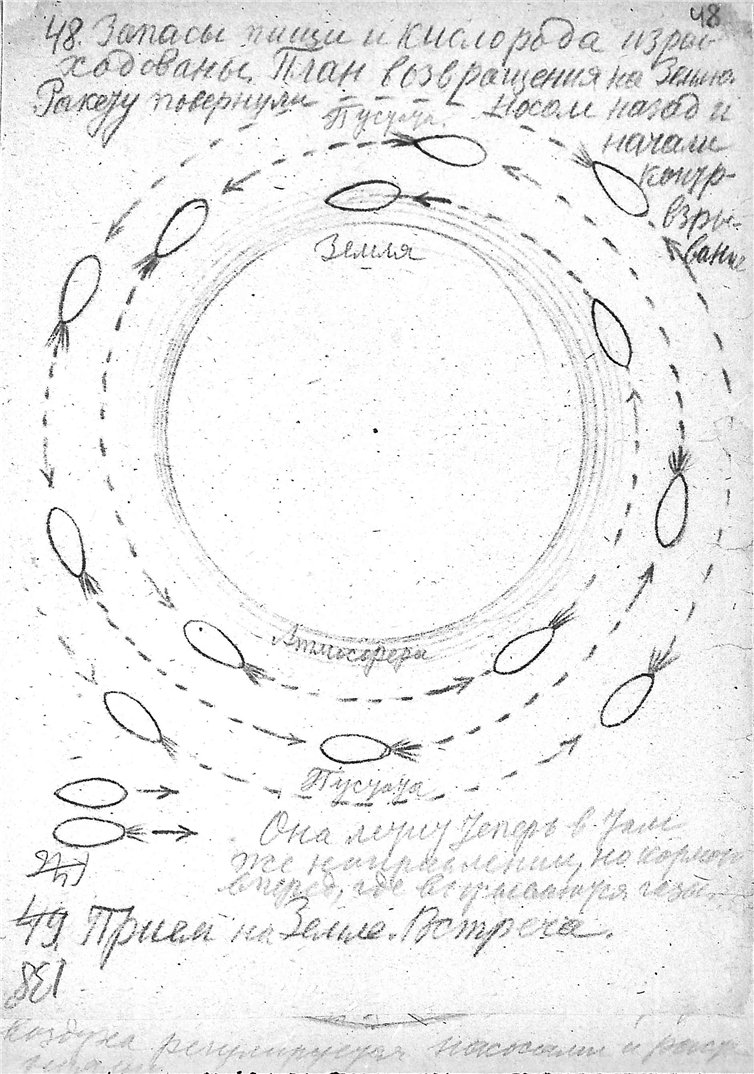 48
48. Запасы пищи и кислорода израс-
ходованы. План возвращения на Землю.
Ракету повернули носом назад и
начали
контр-
взры-
вание
Пустота
Земля
Атмосфера
Пустота
Она летит теперь в том
же направлении, но кормою
вперед, где вырываются газы.
49 Прием на Земле. Встреча.
138
воздуха регулируется насосами и